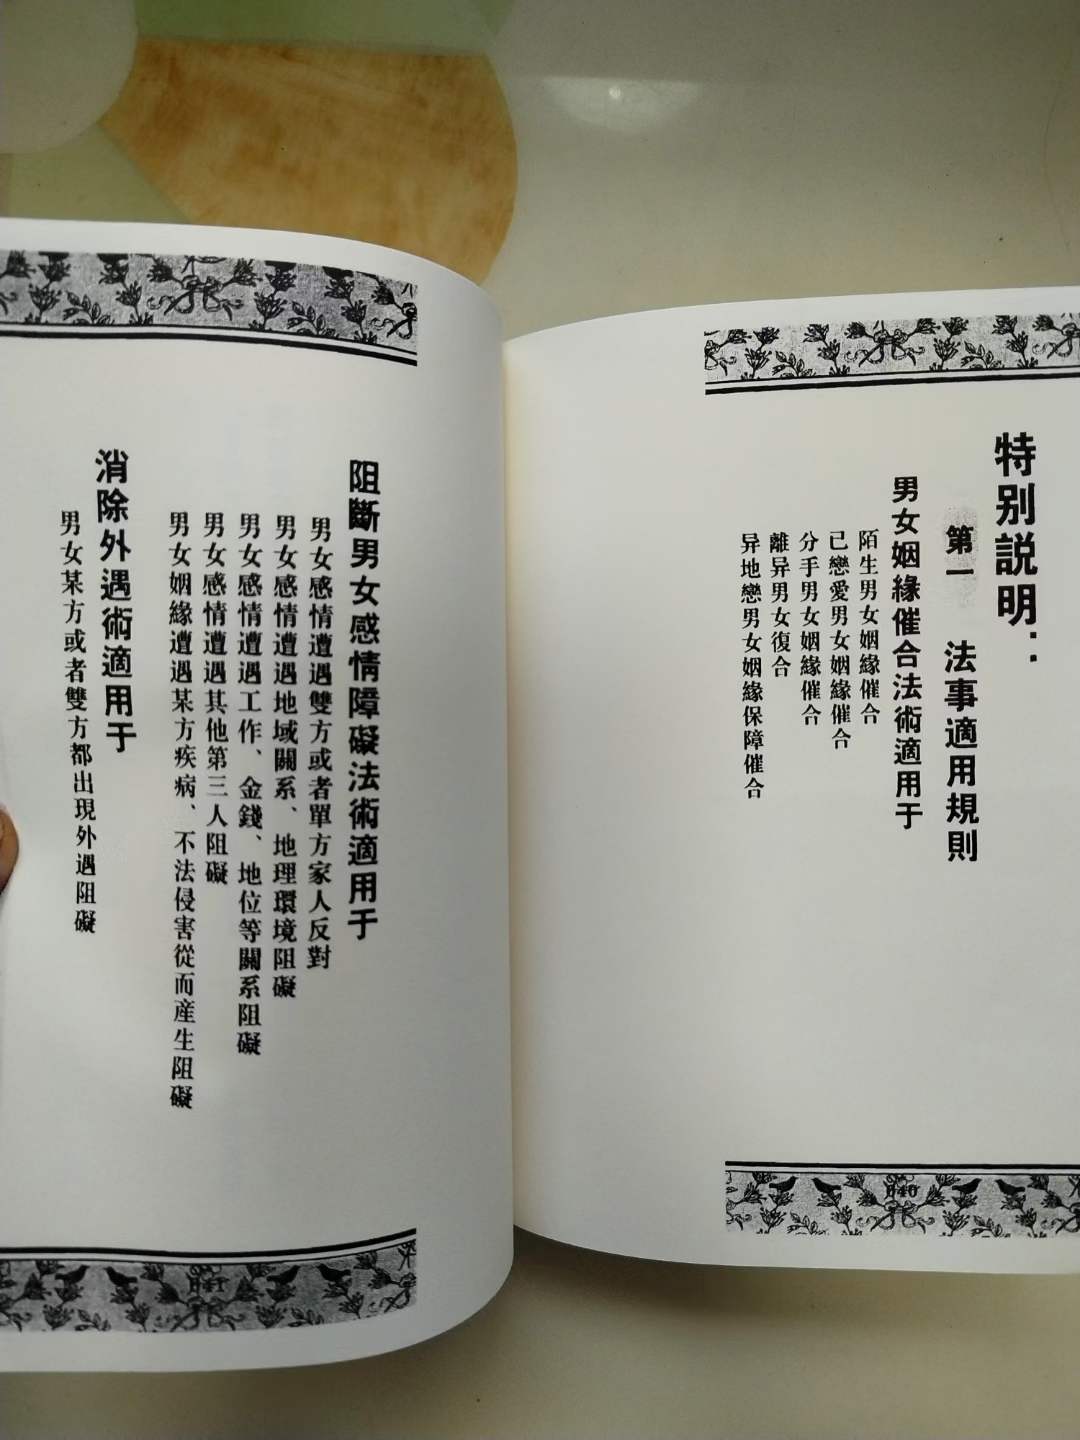 特别説明：
第一 法事適用規則
男女姻緣催合法術適用于
陌生男女姻緣催合
已戀愛男女姻緣催合
分手男女姻緣催合
離异男女復合
异地戀男女姻緣保障催合
040
阻斷男女感情障礙法術適用于
男女感情遭遇雙方或者單方家人反對
男女感情遭遇地域關系、地理環境阻礙
男女感情遭遇工作、金錢、地位等關系阻礙
男女感情遭遇其他第三人阻礙
男女姻緣遭遇某方疾病、不法侵害從而産生阻礙
消除外遇術適用于
男女某方或者雙方都出現外遇阻礙
041